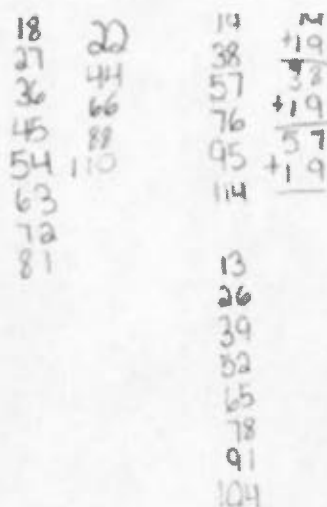 18
27
36
45
54
63
72
81
22
44
66
88
110
19
38
57
76
95
114
+19
38
+19
57
+19
13
26
39
52
65
78
91
104